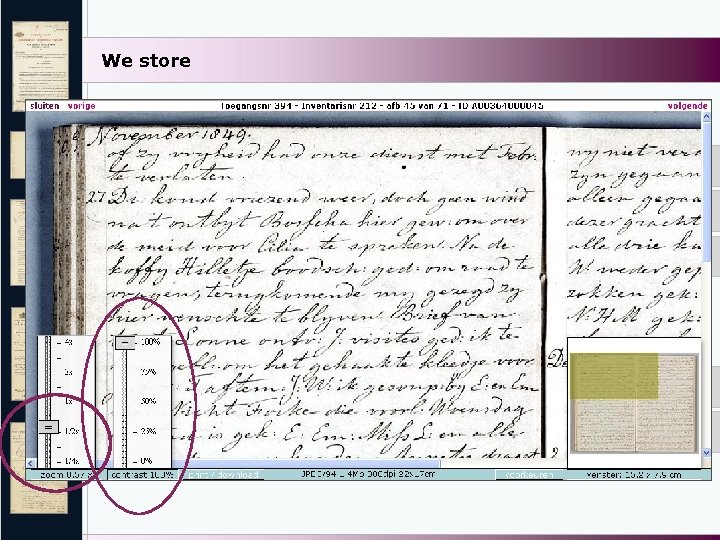 We store
sluiten vorige Toegangsnr 394 - Inventarisnr 212 - afb 45 van 71 - ID A00364000045 volgende
November 1849.
of zy vryheid had onze dienst met Febr.
te verlaten.
27 Di: koud vriezend weer, doch geen wind
na t ontbyt Bosscha hier gew: om over
de meid voor Cilia te spreken. Na de
koffy Hilletje boodsch: ged: om raad te
vragen, terugkomende my gezegd zy
hier wenschte te blyven. Brief van
Sonne ontv: J. visites ged: ik te
om het gehaakte kleedje voor
aftem: J: W: ik gesoup: by E: en Em
Nicht Foeke die voorl: Woensdag
is gek: E: Em: Miss L: en alle
wy niet
zyn gegaan
alleen gegaa
dezer gracht
alle drie
W: weder
zokken gek:
N.H.M gek:
De
4x
2x
1x
1/2x
1/4x
100%
75%
50%
25%
0%
zoom 0.57x contrast 100% print/download JPEG/94 1.4Mb 300dpi 22x17cm voorkeuren venster: 15.2 x 7.9 cm